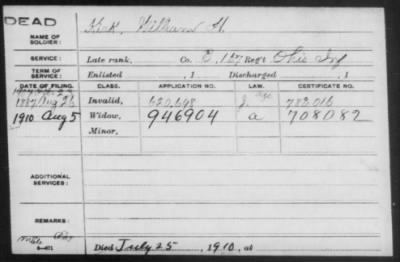 DEAD
NAME OF SOLDIER: Kirk, William H.
SERVICE: Late rank, Co. E, 127 Regt Ohio Inf
TERM OF SERVICE: Enlisted , 1 Discharged , 1
DATE OF FILING. CLASS. APPLICATION NO. LAW. CERTIFICATE NO.
1887 Aug 26 Invalid, 620,698
1910 Aug 5 Widow, 946904 a 708082
Minor,
ADDITIONAL SERVICES:
REMARKS:
Died July 25 , 1910, at